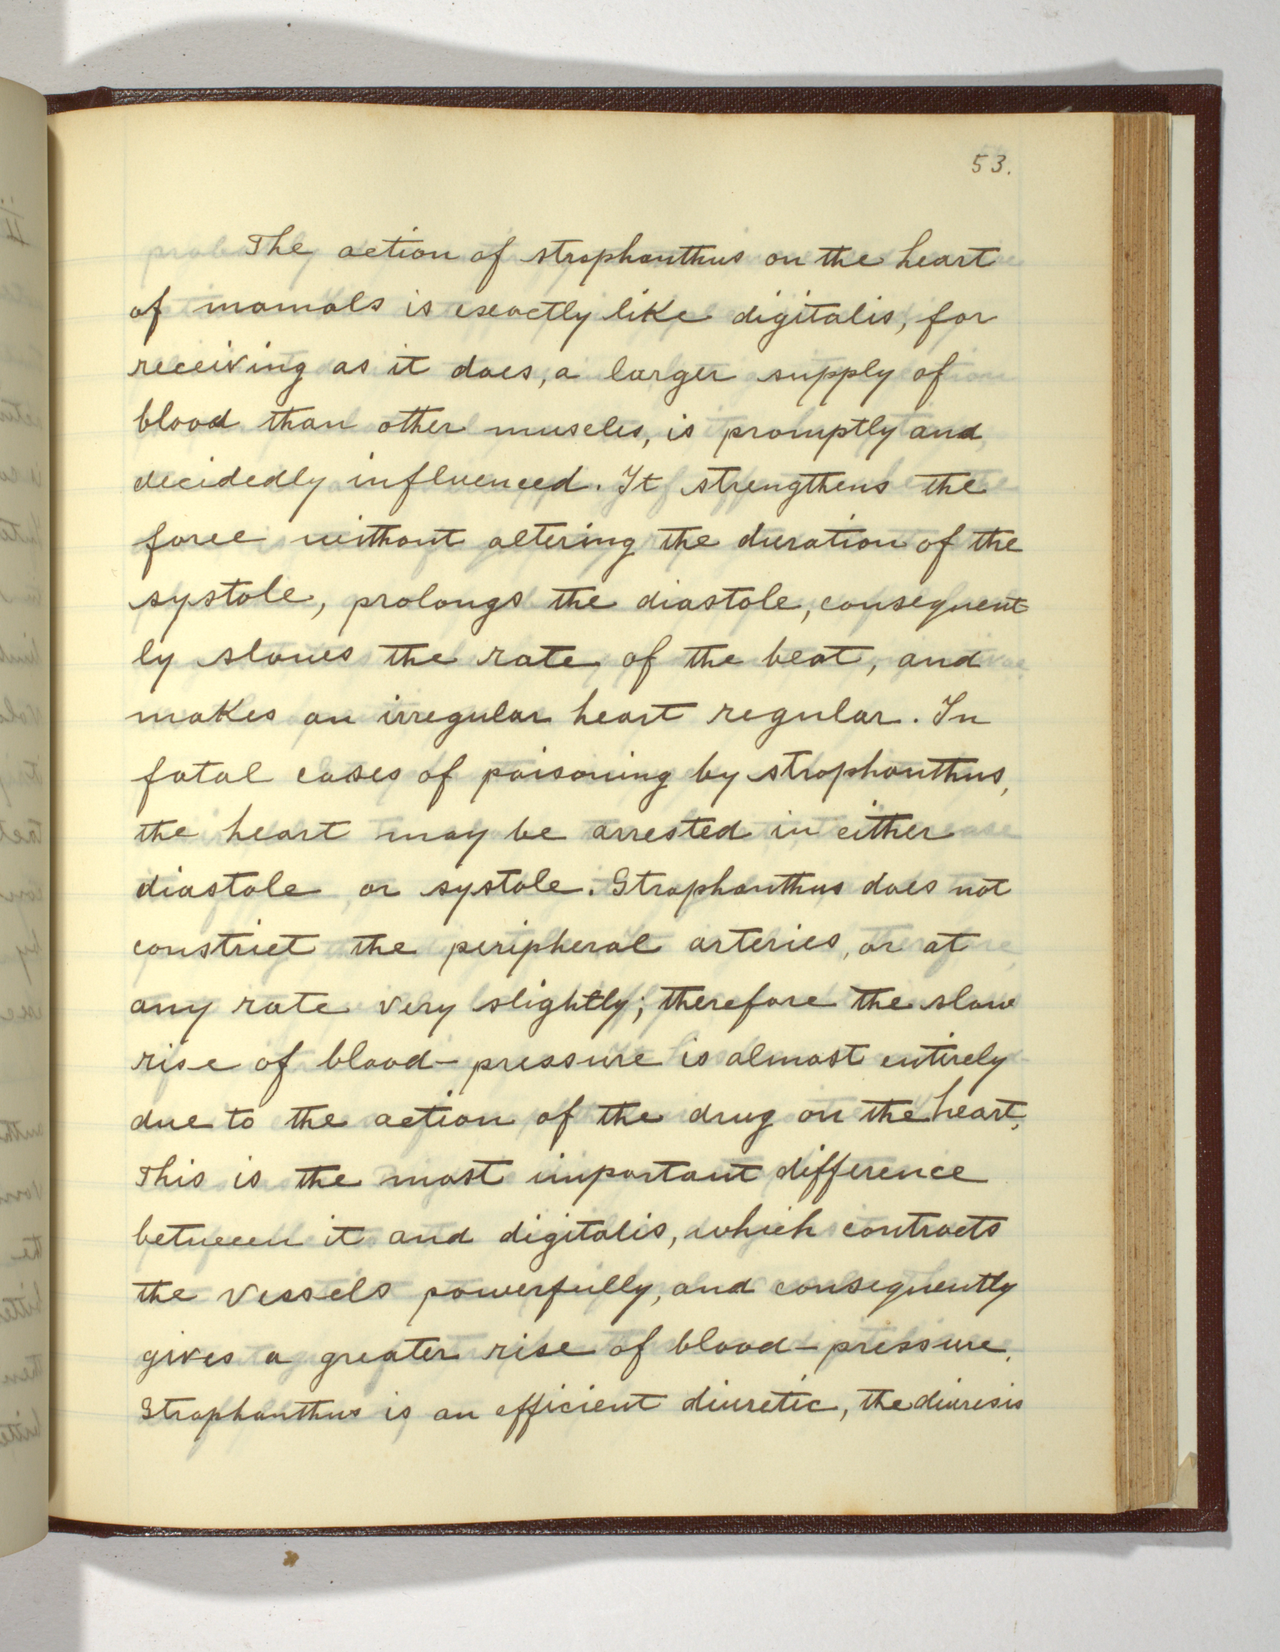 53.
The action of strophanthus on the heart
of mamals is exactly like digitalis, for
receiving as it does, a larger supply of
blood than other muscles, is promptly and
decidedly influenced. It strengthens the
force without altering the duration of the
systole, prolongs the diastole, consequent
ly slows the rate of the beat, and
makes an irregular heart regular. In
fatal cases of poisoning by strophanthus,
the heart may be arrested in either
diastole or systole. Strophanthus does not
constrict the peripheral arteries, or at
any rate very slightly; therefore the slow
rise of blood-pressure is almost entirely
due to the action of the drug on the heart.
This is the most important difference
between it and digitalis, which contracts
the vessels powerfully, and consequently
gives a greater rise of blood-pressure.
Strophanthus is an efficient diuretic, the diuresis